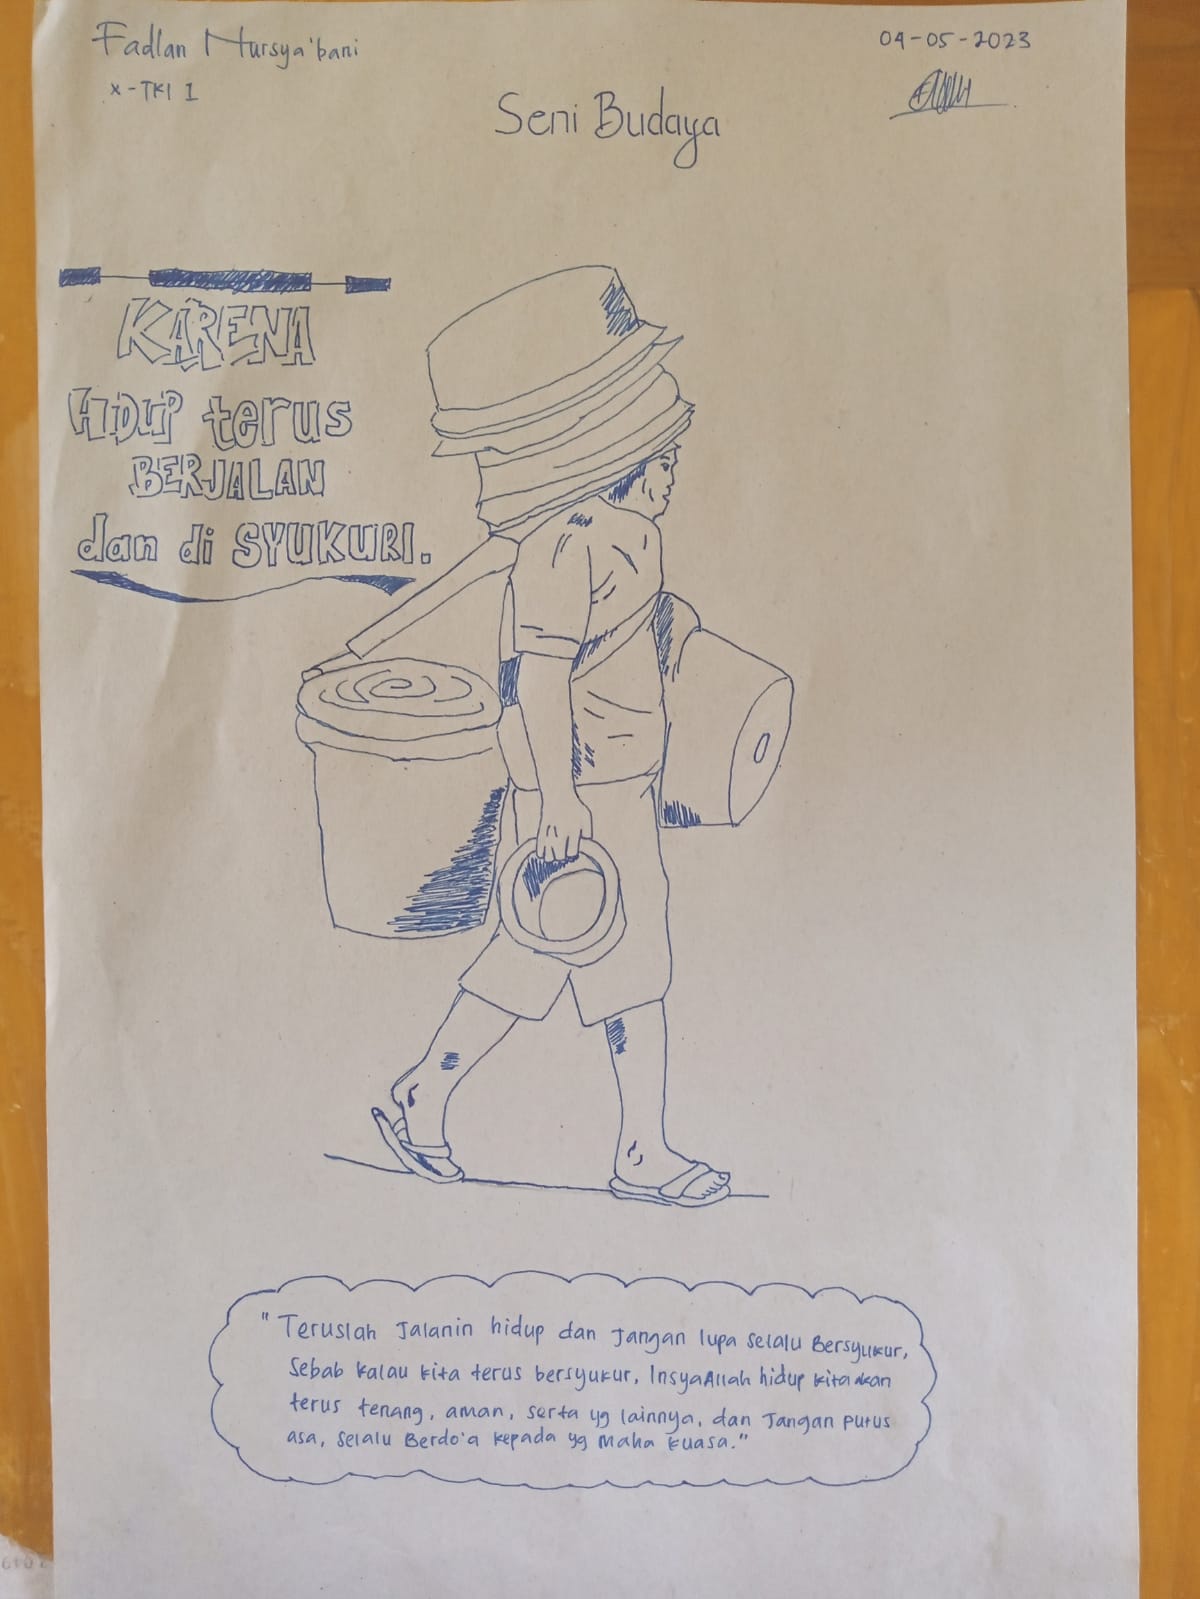 Fadlan Nursya'bani
04-05-2023
X-TKI 1
Seni Budaya
KARENA
HIDUP terus
BERJALAN
dan di SYUKURI.
"Teruslah Jalanin hidup dan Jangan lupa selalu Bersyukur,
Sebab kalau kita terus bersyukur, InsyaAllah hidup kita akan
terus tenang, aman, serta yg lainnya, dan Jangan putus
asa, selalu Berdo'a kepada yg Maha Kuasa."